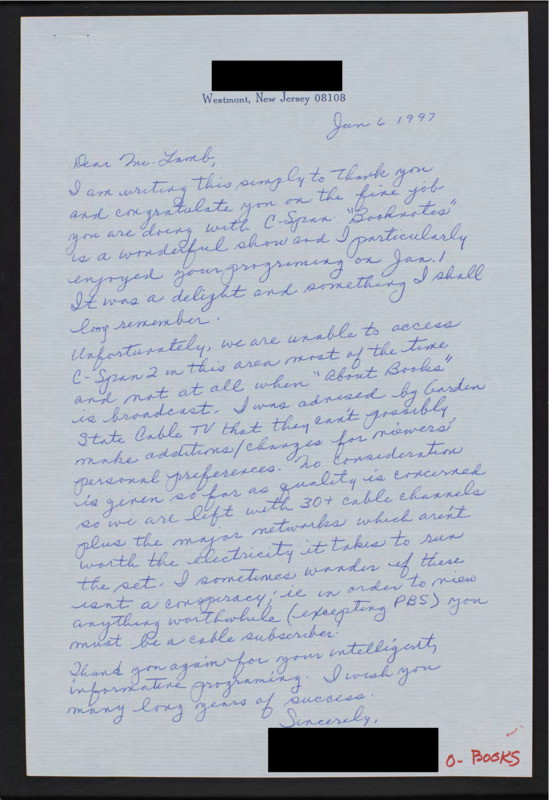 Westmont, New Jersey 08108
Jan 6 1997
Dear Mr. Lamb,
I am writing this simply to thank you
and congratulate you on the fine job
you are doing with C-Span "Booknotes"
is a wonderful show and I particularly
enjoyed your programing on Jan. 1
It was a delight and something I shall
long remember.
Unfortunately, we are unable to access
C-Span 2 in this area most of the time
and not at all when "About Books"
is broadcast. I was advised by Garden
State Cable TV that they can't possibly
make additions/changes for viewers'
personal preferences. No consideration
is given so far as quality is concerned
so we are left with 30+ cable channels
plus the major networks which aren't
worth the electricity it takes to run
the set. I sometimes wonder if there
isnt a conspiracy; ie in order to view
anything worthwhile (excepting PBS) you
must be a cable subscriber.
Thank you again for your intelligent,
informative programing. I wish you
many long years of success.
Sincerely,
O- BOOKS